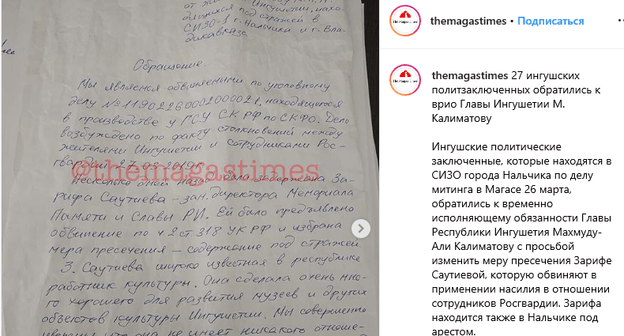 от ж
Ингушетии, нахо-
дящихся под стражей в
СИЗО-1 г. Нальчика и г. Вла-
дикавказа
Обращение
Мы являемся обвиняемыми по уголовному
делу № 11902260001000021, находящемся
в производстве у ГСУ СК РФ по СКФО. Дело
возбуждено по факту столкновений между
жителями Ингушетии и сотрудниками Рос-
гвардии 27.03.2019г.
@themagastimes
Несколько дней назад была задержана За-
рифа Саутиева – зам. директора Мемориала
Памяти и Славы РИ. Ей было предъявлено
обвинение по ч.2 ст 318 УК РФ и избрана
мера пресечения – содержание под стражей.
З. Саутиева широко известная в республике
работник культуры. Она сделала очень мно-
го хорошего для развития музеев и других
объектов культуры Ингушетии. Мы совершенно
что она не имеет никакого отноше-
themagastimes • Подписаться
themagastimes 27 ингушских
политзаключенных обратились к
врио Главы Ингушетии М.
Калиматову
Ингушские политические
заключенные, которые находятся в
СИЗО города Нальчика по делу
митинга в Магасе 26 марта,
обратились к временно
исполняющему обязанности Главы
Республики Ингушетия Махмуду-
Али Калиматову с просьбой
изменить меру пресечения Зарифе
Саутиевой, которую обвиняют в
применении насилия в отношении
сотрудников Росгвардии. Зарифа
находится также в Нальчике под
арестом.